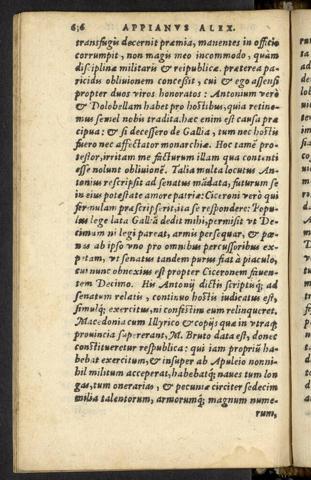 636 APPIANVS ALEX.
transfugis decernit præmia, manentes in officio
corrumpit, non magis meo incommodo, quàm
disciplinæ militaris & reipublicæ. præterea pa-
ricidis obliuionem concessit, cui & ego assensi
propter duos viros honoratos: Antonium verò
& Dolobellam habet pro hostibus, quia retine-
mus semel nobis tradita. hæc enim est causa præ
cipua: & si decessero de Gallia, tum nec hostis
fuero nec affectator monarchiæ. Hoc tamē pro-
testor, irritam me facturum illam qua contenti
esse nolunt obliuionē. Talia multa locutus An-
tonius rescripsit ad senatus mādata, futurum se
in eius potestate amore patriæ: Ciceroni verò qui
formulam præscripserit, ita se respondere: Popu-
lus lege lata Galliā dedit mihi, permisit vt De-
cimum ni legi pareat, armis persequar, & pœ-
nas ab ipso vno pro omnibus percussoribus ex-
petam, vt senatus tandem purus fiat à piaculo,
tui nunc obnoxius est propter Ciceronem fauen-
tem Decimo. His Antonij dictis scriptisq; ad
senatum relatis, continuo hostis iudicatus est,
simulq; exercitus, ni confestim eum relinqueret.
Macedonia cum Illyrico & copijs quæ in vtraq;
prouincia supererant, M. Bruto data est, donec
constitueretur respublica: qui iam propriū ha-
bebat exercitum, & insuper ab Apuleio nonni-
hil militum acceperat, habebatq; naues tum lon
gas, tum onerarias, & pecuniæ circiter sedecim
millia talentorum, armorumq; magnum nume-
rum,